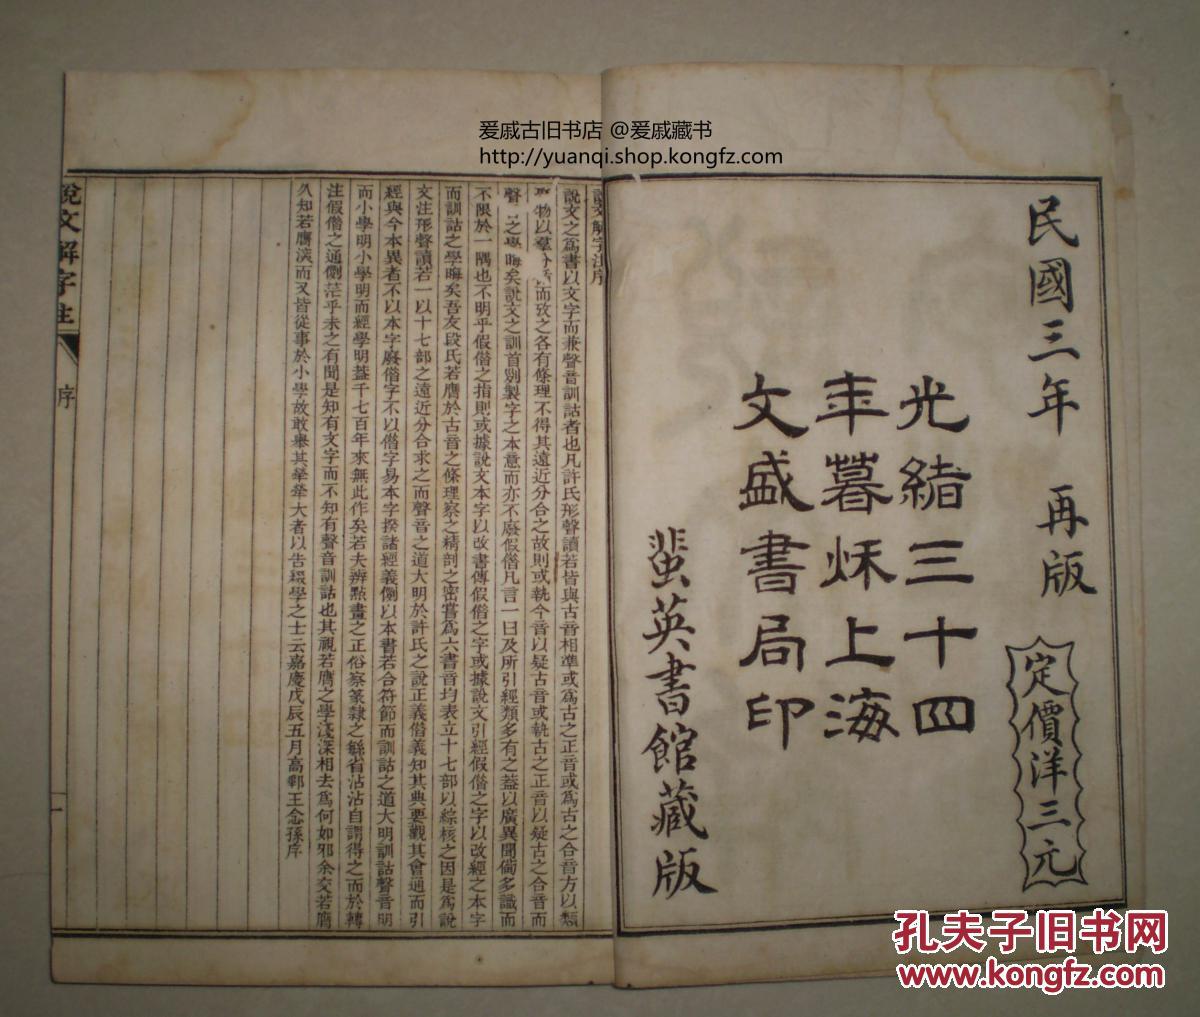 爱戚古旧书店 @爱戚藏书
http://yuanqi.shop.kongfz.com
民國三年 再版
定價洋三元
光緒三十四
年暮秌上海
文盛書局印
蜚英書館藏版
說文解字注序
說文之爲書以文字而兼聲音訓詁者也凡許氏形聲讀若皆與古音相準或爲古之正音或爲古之合音方以類
聚物以羣分而攷之各有條理不得其遠近分合之故則或執今音以疑古音或執古之正音以疑古之合音而
聲之學晦矣說文之訓首列製字之本意而亦不廢假借凡言一曰及所引經類多有之蓋以廣異聞備多識而
不限於一隅也不明乎假借之指則或據說文本字以改書傳假借之字或據說文引經假借之字以改經之本字
而訓詁之學晦矣吾友段氏若膺於古音之條理察之精剖之密嘗爲六書音均表立十七部以綜核之因是爲說
文注形聲讀若一以十七部之遠近分合求之而聲音之道大明於許氏之說正義借義知其典要觀其會通而引
經與今本異者不以本字廢借字不以借字易本字揆諸經義例以本書若合符節而訓詁之道大明訓詁聲音明
而小學明小學明而經學明蓋千七百年來無此作矣若夫辨點畫之正俗察篆隸之緐省沾沾自謂得之而於轉
注假借之通例茫乎未之有聞是知有文字而不知有聲音訓詁也其視若膺之學淺深相去爲何如邪余交若膺
久知若膺深而又皆從事於小學故敢舉其犖犖大者以告綴學之士云嘉慶戊辰五月高郵王念孫序
說文解字注
序
一
孔夫子旧书网
www.kongfz.com